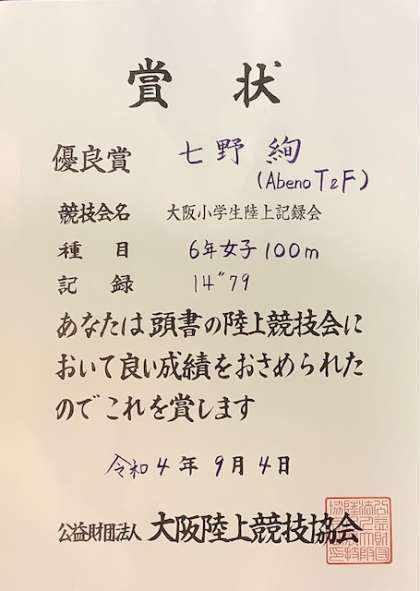 賞状
優良賞 七野 絢
(Abeno T&F)
競技会名 大阪小学生陸上記録会
種目 6年女子100m
記録 14"79
あなたは頭書の陸上競技会に
おいて良い成績をおさめられた
のでこれを賞します
令和4年9月4日
公益財団法人 大阪陸上競技協会